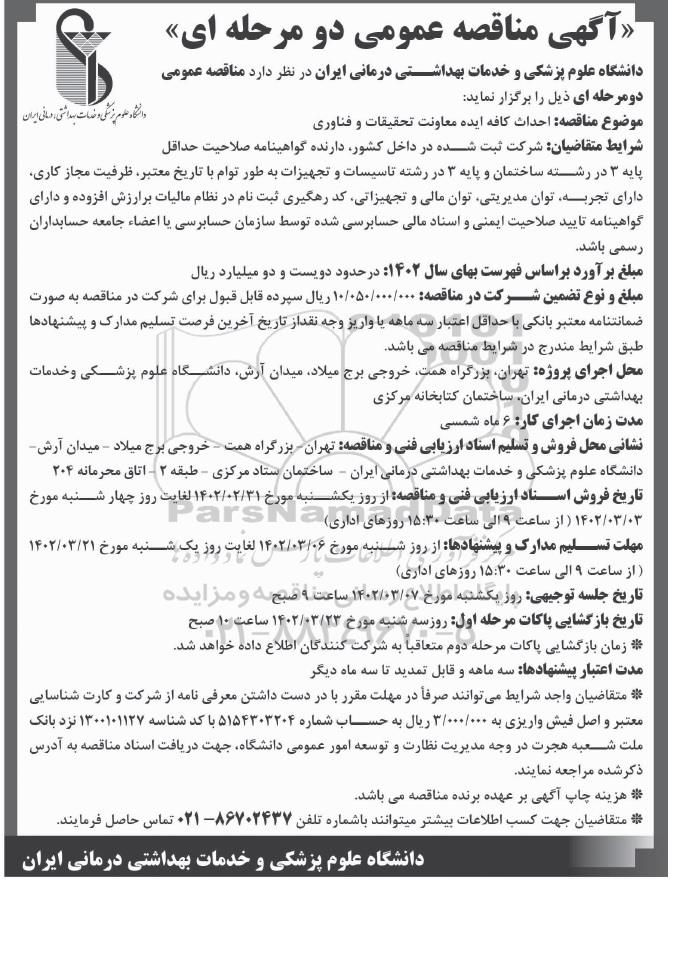 «آگهی مناقصه عمومی دو مرحله ای»
دانشگاه علوم پزشکی و خدمات بهداشتی درمانی ایران
دانشگاه علوم پزشکی و خدمات بهداشتی درمانی ایران در نظر دارد مناقصه عمومی
دومرحله ای ذیل را برگزار نماید:
موضوع مناقصه: احداث کافه ایده معاونت تحقیقات و فناوری
شرایط متقاضیان: شرکت ثبت شده در داخل کشور، دارنده گواهینامه صلاحیت حداقل
پایه ۳ در رشته ساختمان و پایه ۳ در رشته تاسیسات و تجهیزات به طور توام با تاریخ معتبر، ظرفیت مجاز کاری،
دارای تجربه، توان مدیریتی، توان مالی و تجهیزاتی، کد رهگیری ثبت نام در نظام مالیات برارزش افزوده و دارای
گواهینامه تایید صلاحیت ایمنی و اسناد مالی حسابرسی شده توسط سازمان حسابرسی یا اعضاء جامعه حسابداران
رسمی باشد.
مبلغ برآورد براساس فهرست بهای سال ۱۴۰۲: درحدود دویست و دو میلیارد ریال
مبلغ و نوع تضمین شرکت در مناقصه: ۱۰/۰۵۰/۰۰۰/۰۰۰ ریال سپرده قابل قبول برای شرکت در مناقصه به صورت
ضمانتنامه معتبر بانکی با حداقل اعتبار سه ماهه یا واریز وجه نقداز تاریخ آخرین فرصت تسلیم مدارک و پیشنهادها
طبق شرایط مندرج در شرایط مناقصه می باشد.
محل اجرای پروژه: تهران، بزرگراه همت، خروجی برج میلاد، میدان آرش، دانشگاه علوم پزشکی وخدمات
بهداشتی درمانی ایران، ساختمان کتابخانه مرکزی
مدت زمان اجرای کار: ۶ ماه شمسی
نشانی محل فروش و تسلیم اسناد ارزیابی فنی و مناقصه: تهران- بزرگراه همت - خروجی برج میلاد - میدان آرش-
دانشگاه علوم پزشکی و خدمات بهداشتی درمانی ایران - ساختمان ستاد مرکزی - طبقه ۲ - اتاق محرمانه ۲۰۴
تاریخ فروش اسناد ارزیابی فنی و مناقصه: از روز یکشنبه مورخ ۱۴۰۲/۰۲/۳۱ لغایت روز چهار شنبه مورخ
۱۴۰۲/۰۳/۰۳ ( از ساعت ۹ الی ساعت ۱۵:۳۰ روزهای اداری)
مهلت تسلیم مدارک و پیشنهادها: از روز شنبه مورخ ۱۴۰۲/۰۳/۰۶ لغایت روز یک شنبه مورخ ۱۴۰۲/۰۳/۲۱
( از ساعت ۹ الی ساعت ۱۵:۳۰ روزهای اداری)
تاریخ جلسه توجیهی: روز یکشنبه مورخ ۱۴۰۲/۰۳/۰۷ ساعت ۹ صبح
تاریخ بازگشایی پاکات مرحله اول: روزسه شنبه مورخ ۱۴۰۲/۰۳/۲۳ ساعت ۱۰ صبح
* زمان بازگشایی پاکات مرحله دوم متعاقباً به شرکت کنندگان اطلاع داده خواهد شد.
مدت اعتبار پیشنهادها: سه ماهه و قابل تمدید تا سه ماه دیگر
* متقاضیان واجد شرایط می‌توانند صرفاً در مهلت مقرر با در دست داشتن معرفی نامه از شرکت و کارت شناسایی
معتبر و اصل فیش واریزی به ۳/۰۰۰/۰۰۰ ریال به حساب شماره ۵۱۵۴۳۰۳۲۰۴ با کد شناسه ۱۳۰۰۱۰۱۱۲۷ نزد بانک
ملت شعبه هجرت در وجه مدیریت نظارت و توسعه امور عمومی دانشگاه، جهت دریافت اسناد مناقصه به آدرس
ذکرشده مراجعه نمایند.
* هزینه چاپ آگهی بر عهده برنده مناقصه می باشد.
* متقاضیان جهت کسب اطلاعات بیشتر میتوانند باشماره تلفن ۸۶۷۰۲۴۳۷-۰۲۱ تماس حاصل فرمایند.
دانشگاه علوم پزشکی و خدمات بهداشتی درمانی ایران
ParsNamadData
پایگاه اطلاع رسانی مناقصه و مزایده
۰۲۱-۸۸۳۴۹۶۷۰-۵